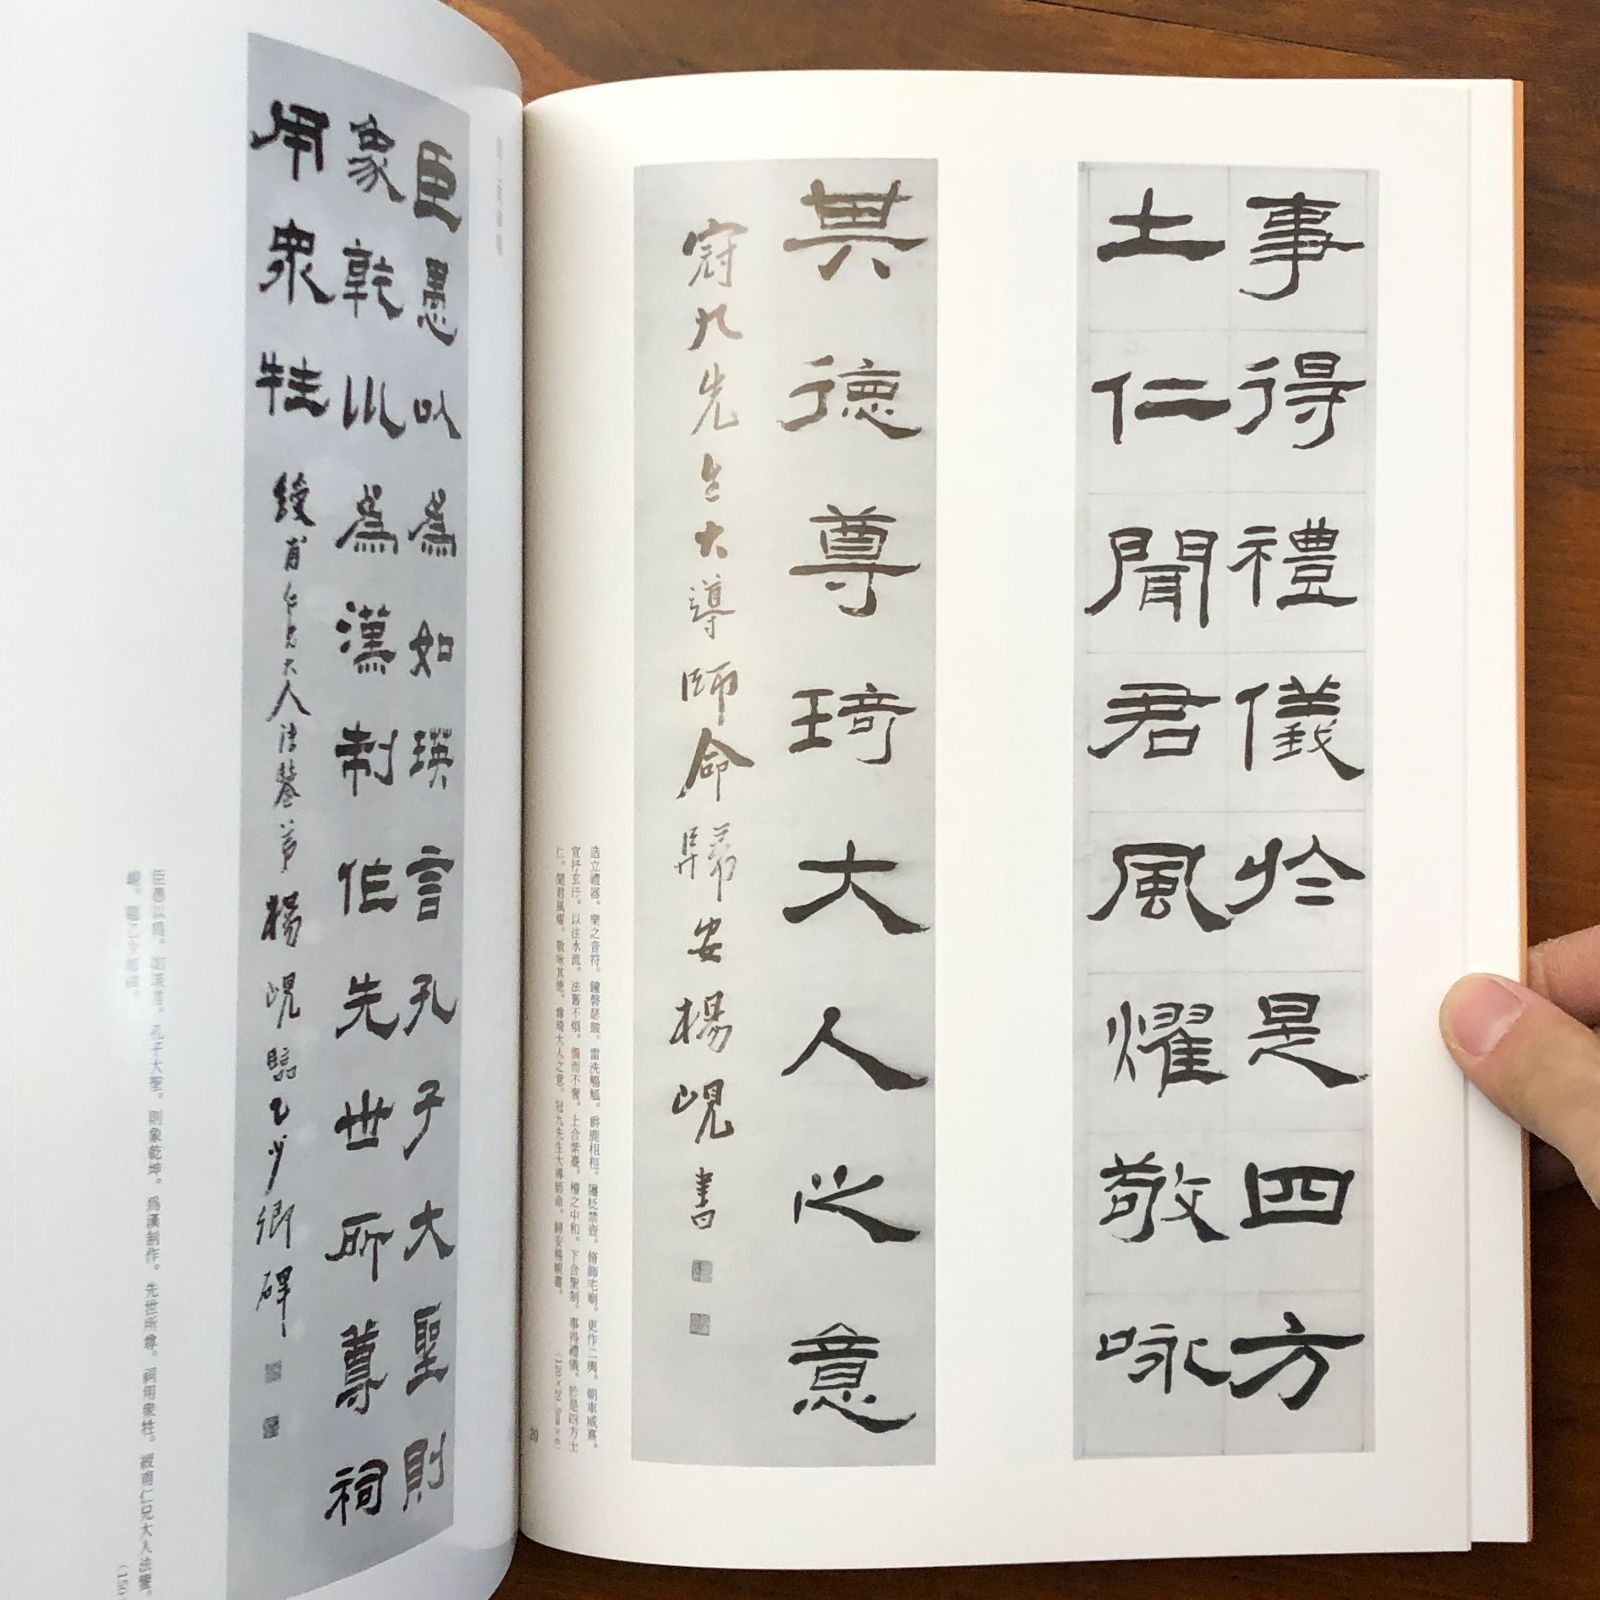 事得禮儀於是四方
土仁聞君風燿敬咏
其德尊琦大人之意
冠九先生大導師命歸安楊峴書
造立禮器。樂之音符。鐘磬瑟鼓。雷洗觴觚。爵鹿柤桓。籩柉禁壺。脩飾宅廟。更作二輿。朝車威熹。
宣抒玄汙。以注水流。法舊不煩。備而不奢。上合紫臺。稽之中和。下合聖制。事得禮儀。於是四方士
仁。聞君風燿。敬咏其德。尊琦大人之意。冠九先生大導師命。歸安楊峴書。
20
臣愚以為如瑛言孔子大聖則
象乾川為漢制作先世所尊祠
用衆牲
綬甫仁兄大人法鑒弟楊峴臨乙少卿碑
臣愚以爲。如瑛言。孔子大聖。則象乾坤。爲漢制作。先世所尊。祠用衆牲。綬甫仁兄大人法鑒。
峴。臨乙少卿碑。